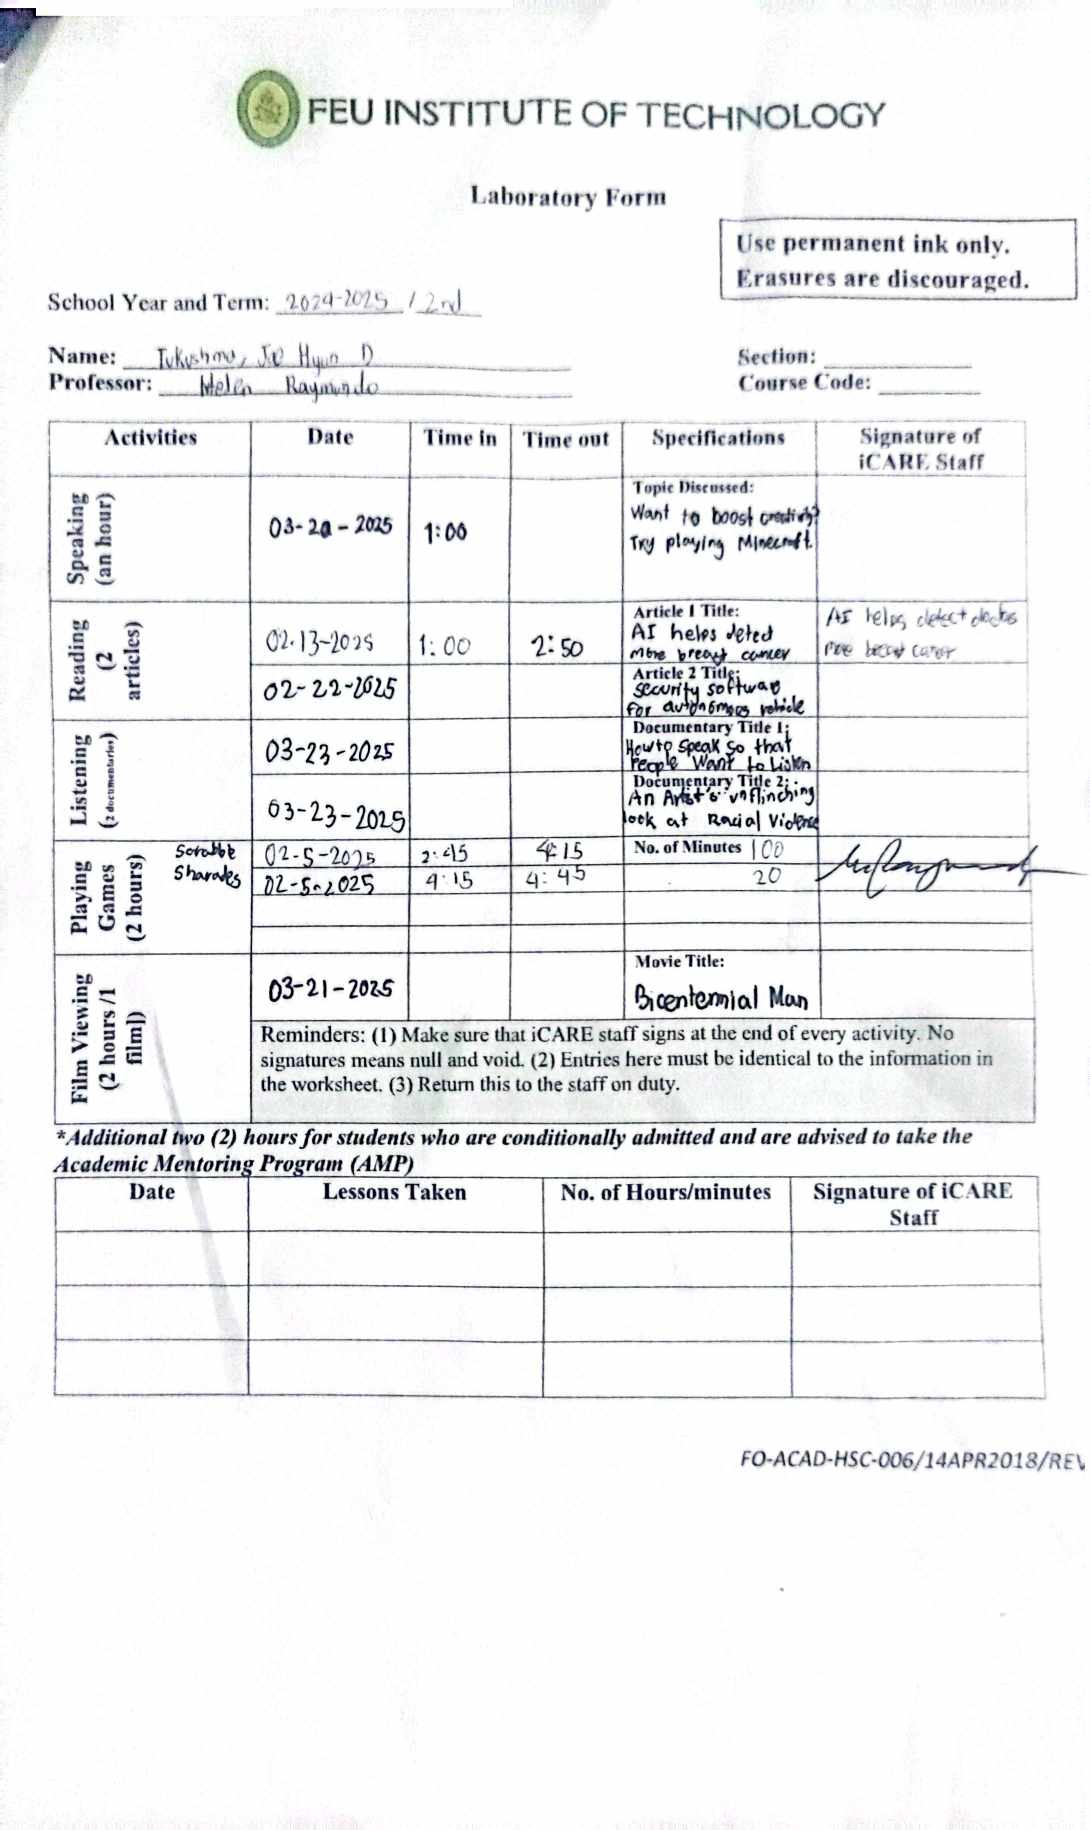 FEU INSTITUTE OF TECHNOLOGY
Laboratory Form
Use permanent ink only.
Erasures are discouraged.
School Year and Term: 2024-2025 / 2nd
Name: Hyun D
Section:
Professor: Helen Raymundo
Course Code:
Activities Date Time in Time out Specifications Signature of iCARE Staff
Speaking (an hour)
03-20-2025 1:00
Topic Discussed:
Want to boost creativity?
Try playing Minecraft.
Reading (2 articles)
02-13-2025 1:00 2:50
Article 1 Title:
AI helps deted
more breast cancer
AI helps detect doctos
more breast cancer
02-22-2025
Article 2 Title:
security software
for autonomous vehicle
Listening (2 documentaries)
03-23-2025
Documentary Title 1:
How to speak so that
People Want to Listen
03-23-2025
Documentary Title 2:
An Artist's unflinching
look at Racial Violence
Playing Games (2 hours)
Scrabble 02-5-2025 2:45 4:15 No. of Minutes 100
Sharades 02-5-2025 4:15 4:45 20
Film Viewing (2 hours /1 film])
03-21-2025
Movie Title:
Bicentennial Man
Reminders: (1) Make sure that iCARE staff signs at the end of every activity. No
signatures means null and void. (2) Entries here must be identical to the information in
the worksheet. (3) Return this to the staff on duty.
*Additional two (2) hours for students who are conditionally admitted and are advised to take the
Academic Mentoring Program (AMP)
Date Lessons Taken No. of Hours/minutes Signature of iCARE Staff
FO-ACAD-HSC-006/14APR2018/REV